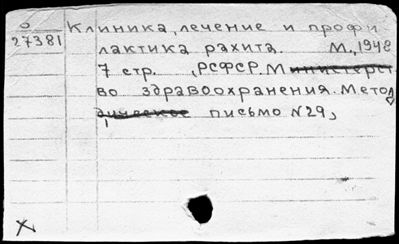 О
27381
Клиника, лечение и профи
лактика рахита. М., 1948
7 стр. (РСФСР. Министерст
во здравоохранения. Метод
ическое письмо N29)
X